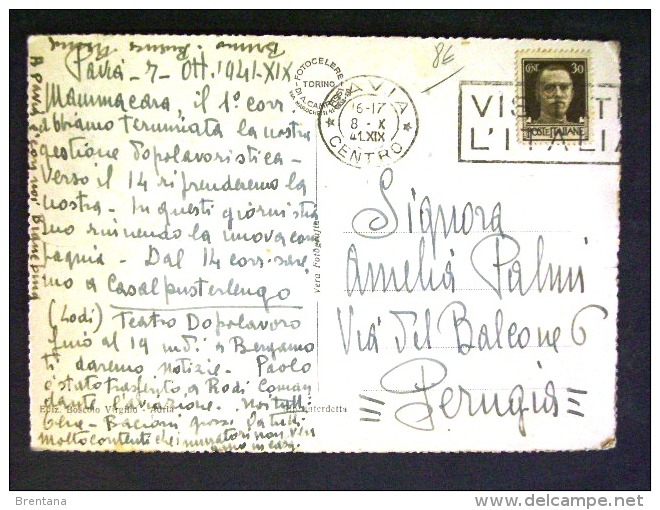 Pavia - 7 - Ott. 1941-XIX
Mammacara, il 1° corr.
abbiamo terminata la nostra
gestione dopolavoristica -
Verso il 14 riprenderemo la
nostra - In questi giorni sta
mo riunendo la nuova com
pagnia - Dal 14 corr. sare
mo a Casalpusterlengo
(Lodi) Teatro Dopolavoro
fino al 19 indi a Bergamo
ti daremo notizie - Paolo
è stato trasferito a Rodi Coman
dante l'aviazione. Noi tutti
bene - Bacioni
molto contenti che i muratori non
in casa
FOTOCELERE
TORINO
DI A. CAMPASSI
PAVIA
CENTRO
16-17
8 - X
41.XIX
CENT 30
POSTE ITALIANE
VISITATE
L'ITALIA
86
Signora
Amelia Palmi
Via del Balcone 6
Perugia
Vera Fotografia
Ediz. Boscolo Virgilio - Adria
Brentana
www.delcampe.net